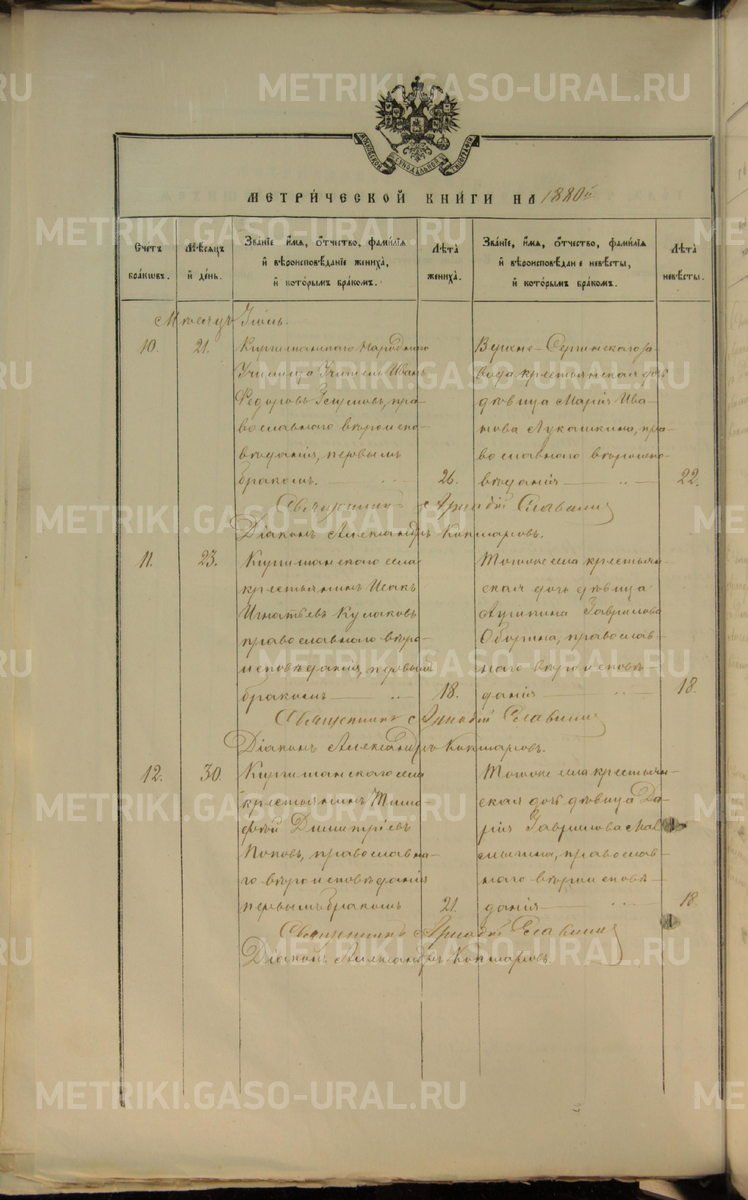 METRIKI.GASO-URAL.RU
МЕТРИ́ЧЕСКОЙ КНИ́ГИ НА 1880й
Счетъ бра́кѡвъ.
Мѣ́сяцъ и́ де́нь.
Зва́нїе и́мя, ѻ́тчество, фами́лїя и́ вѣроисповѣ́данїе жениха̀, и́ кото́рымъ бра́комъ.
Лѣ́та жениха̀.
Зва́нїе, и́мя, ѻ́тчество, фами́лїя и́ вѣроисповѣ́данїе невѣ́сты, и́ кото́рымъ бра́комъ.
Лѣ́та невѣ́сты.
Мѣсяцъ
10.
21.
Киргишанскаго Народнаго
Училища Учитель Иванъ
Ѳедоровъ пра-
вославнаго вѣроиспо-
вѣданія, первымъ
бракомъ.
26.
Верхне-Сергинскаго за-
вода крестьянская дочь
дѣвица Марія Ива-
нова Лукашкина, пра-
вославнаго вѣроиспо-
вѣданія
22.
Священникъ Аркадій Славнинъ
Діаконъ Александръ Кокшаровъ.
11.
23.
Киргишанскаго села
крестьянинъ Исакъ
Игнатьевъ Кулаковъ
православнаго вѣро-
исповѣданія, первымъ
бракомъ
18.
Тогоже села крестьян-
ская дочь дѣвица
Агрипина Гаврилова
Оборина, православ-
наго вѣроисповѣ-
данія
18.
Священникъ Аркадій Славнинъ
Діаконъ Александръ Кокшаровъ.
12.
30.
Киргишанскаго села
крестьянинъ Тимо-
фей Димитріевъ
Поповъ, православна-
го вѣроисповѣданія
первымъ бракомъ
21.
Тогоже села крестьян-
ская дочь дѣвица Да-
рія Гаврилова Мал-
мыгина, православ-
наго вѣроисповѣ-
данія
18.
Священникъ Аркадій Славнинъ
Діаконъ Александръ Кокшаровъ